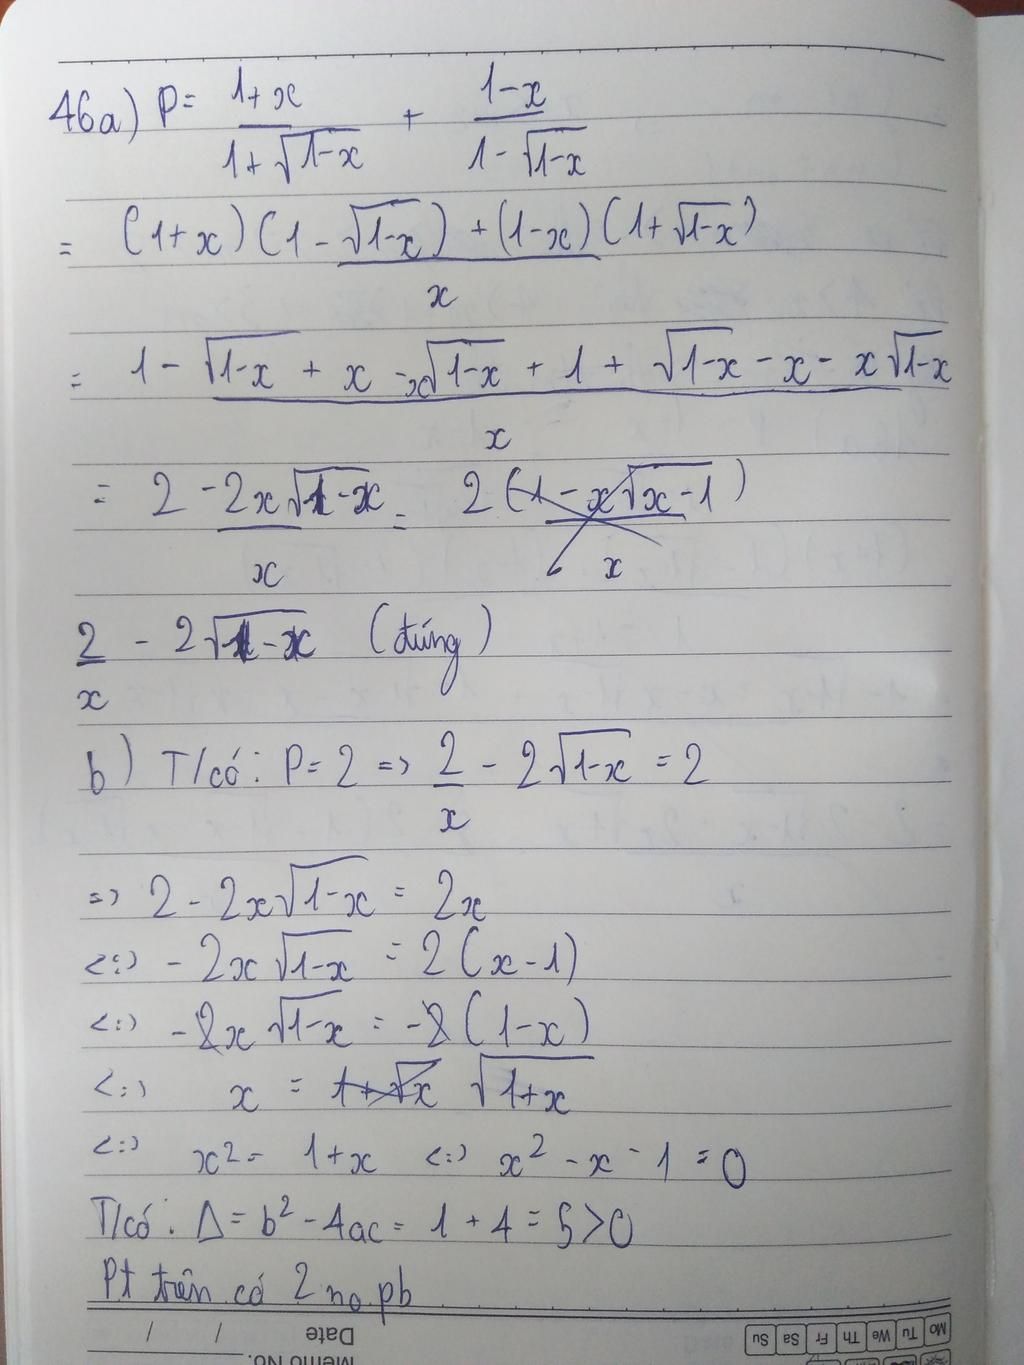 46a) P = (1+x)/(1+√(1-x)) + (1-x)/(1-√(1-x))
= ((1+x)(1-√(1-x)) + (1-x)(1+√(1-x)))/x
= (1 - √(1-x) + x - x√(1-x) + 1 + √(1-x) - x - x√(1-x))/x
= (2 - 2x√(1-x))/x = 2(1 - x√(x-1))/x
2/x - 2√(1-x) (đúng)
b) T/có: P = 2 => 2/x - 2√(1-x) = 2
=> 2 - 2x√(1-x) = 2x
<=> - 2x√(1-x) = 2(x-1)
<=> -2x√(1-x) = -2(1-x)
<=> x = 1+√x √(1+x)
<=> x² = 1+x <=> x² - x - 1 = 0
T/có: Δ = b² - 4ac = 1 + 4 = 5 > 0
Pt trên có 2 no pb
Mo Tu We Th Fr Sa Su
Date / /
Memo No.